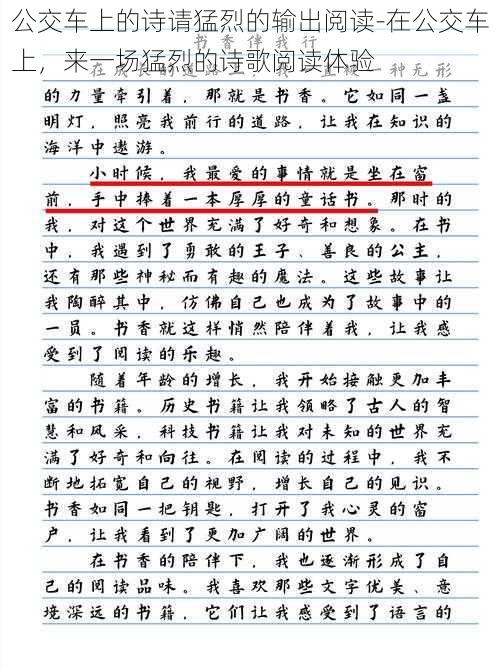 公交车上的诗请猛烈的输出阅读-在公交车
上，来一场猛烈的诗歌阅读体验
书香伴我行
在成长的道路上，我一直被一种无形
的力量牵引着，那就是书香。它如同一盏
明灯，照亮我前行的道路，让我在知识的
海洋中遨游。
小时候，我最爱的事情就是坐在窗
前，手中捧着一本厚厚的童话书。那时的
我，对这个世界充满了好奇和想象。在书
中，我遇到了勇敢的王子、善良的公主，
还有那些神秘而有趣的魔法。这些故事让
我陶醉其中，仿佛自己也成为了故事中的
一员。书香就这样悄然陪伴着我，让我感
受到了阅读的乐趣。
随着年龄的增长，我开始接触更加丰
富的书籍。历史书籍让我领略了古人的智
慧和风采，科技书籍让我对未知的世界充
满了好奇和向往。在阅读的过程中，我不
断地拓宽自己的视野，增长自己的见识。
书香如同一把钥匙，打开了我心灵的窗
户，让我看到了更加广阔的世界。
在书香的陪伴下，我也逐渐形成了自
己的阅读品味。我喜欢那些文字优美、意
境深远的书籍，它们让我感受到了语言的